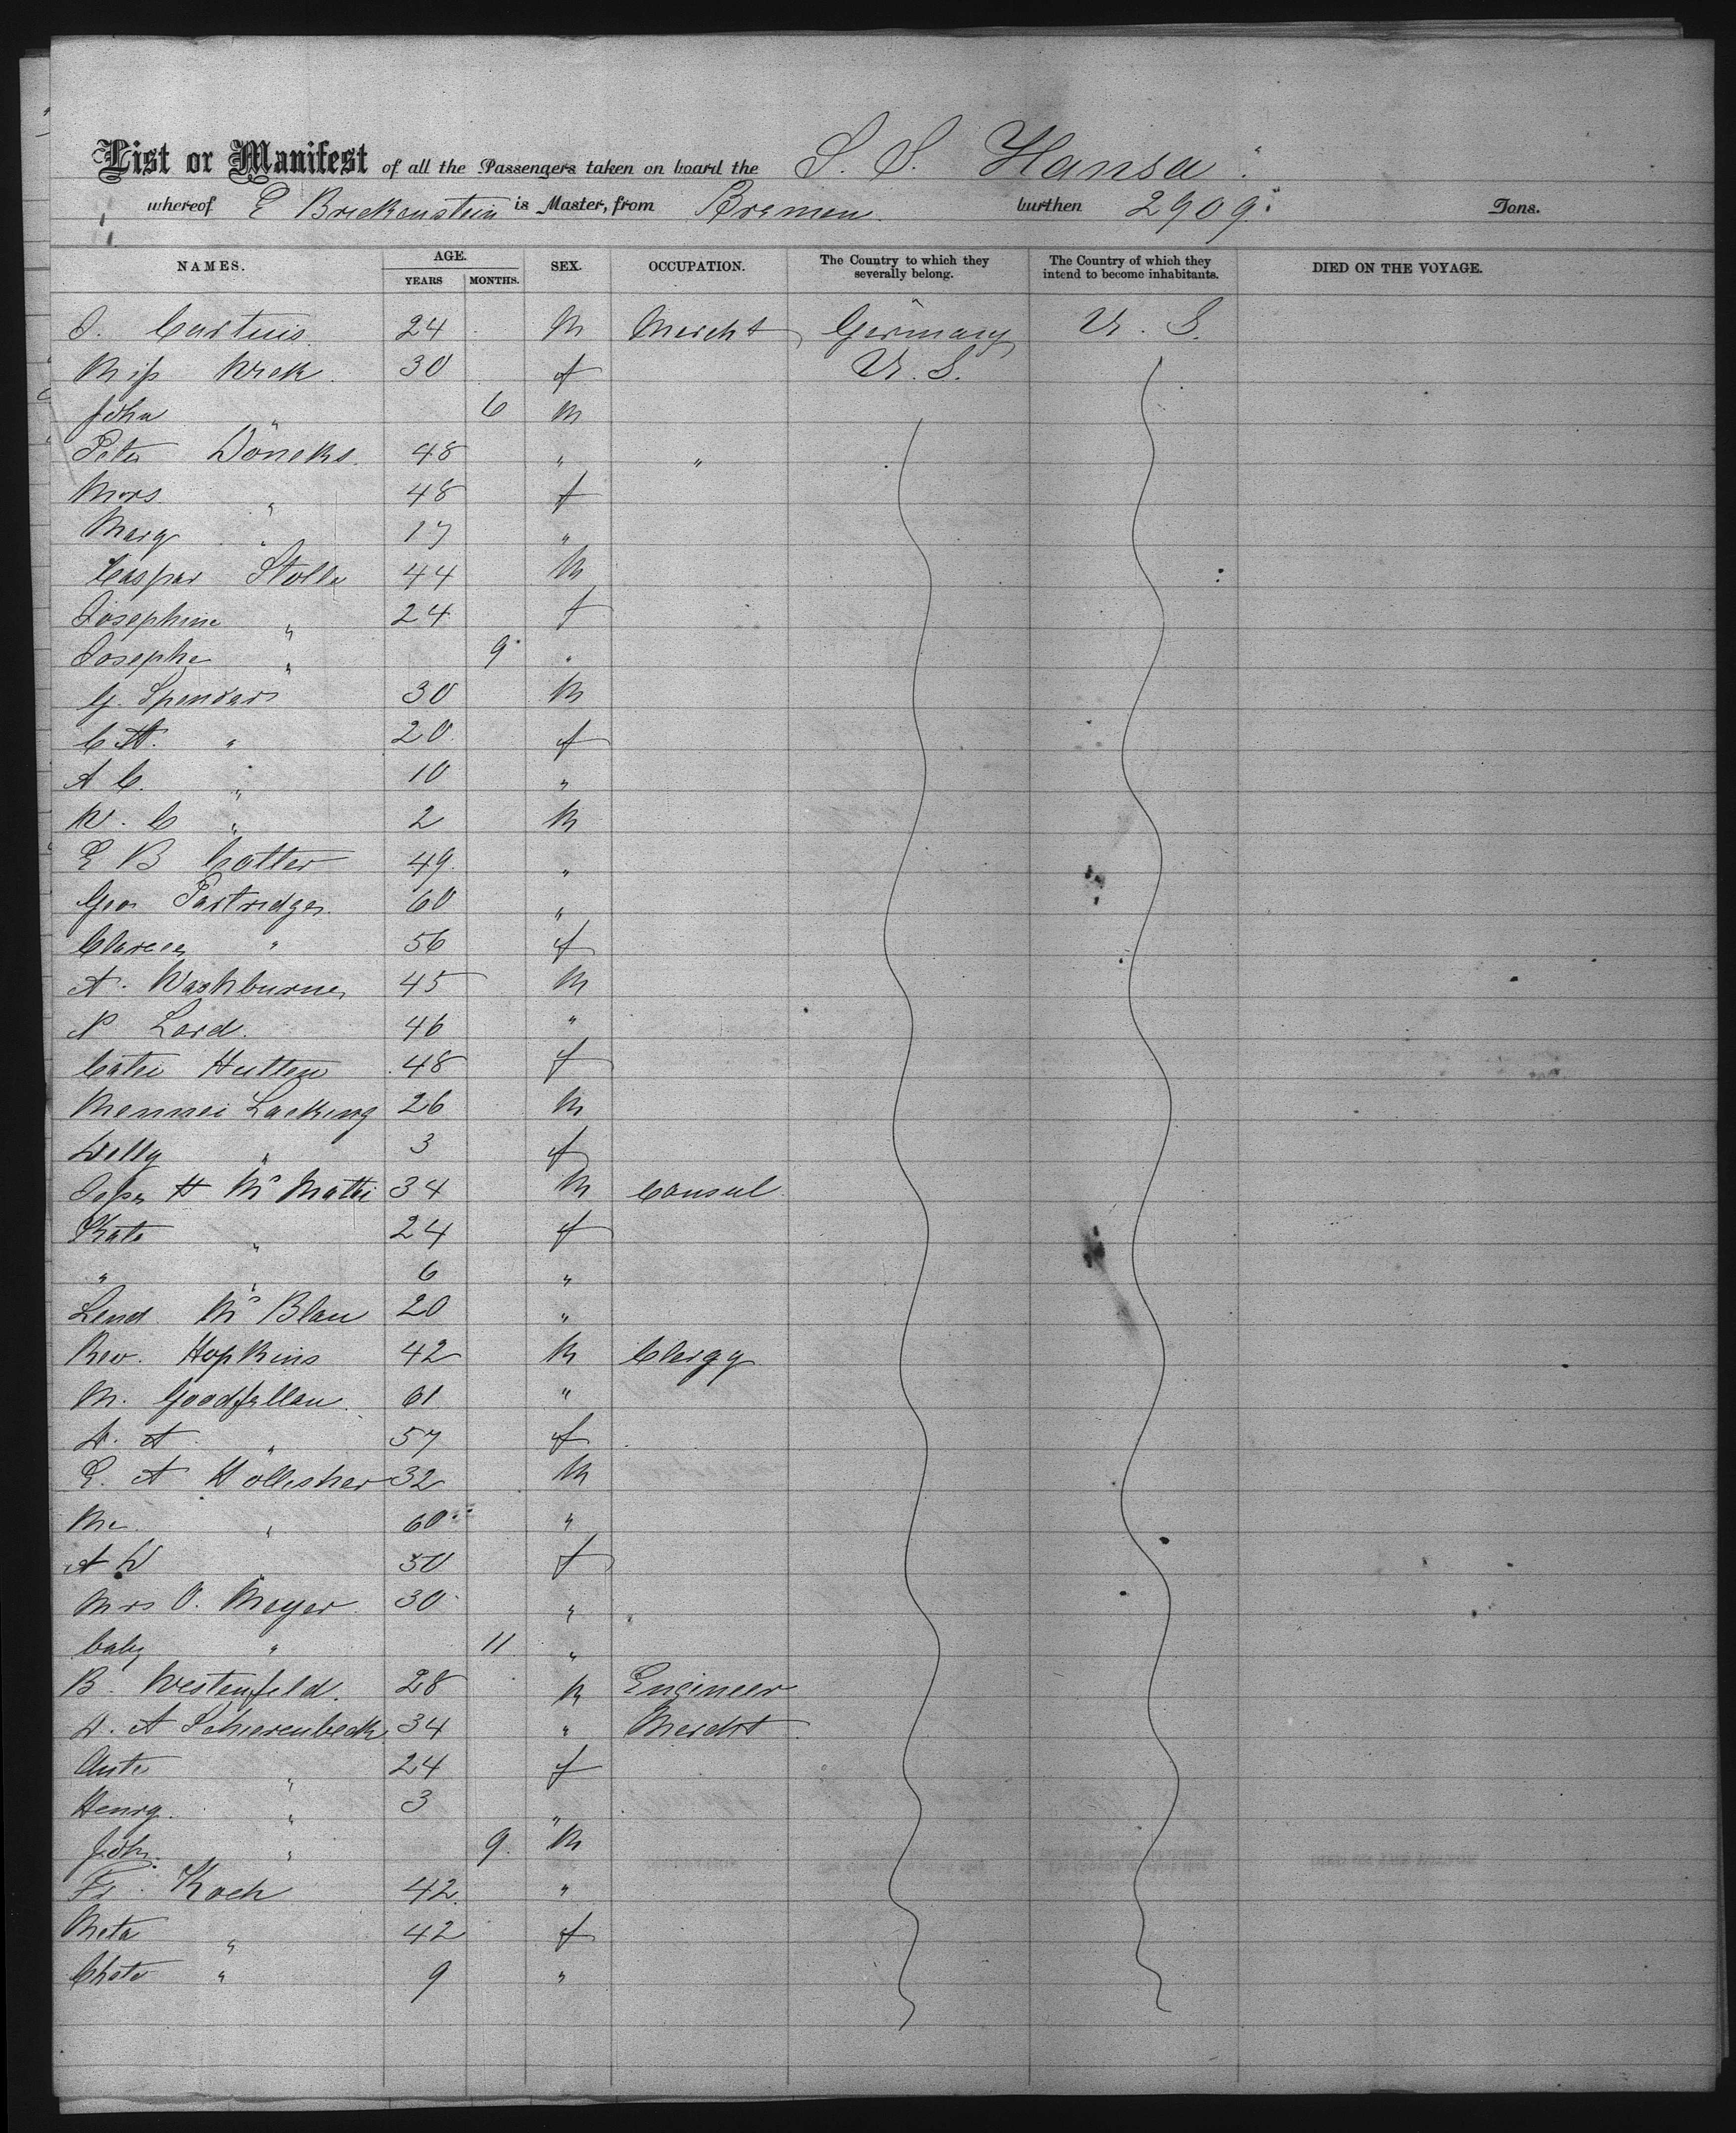 List or Manifest of all the Passengers taken on board the S. S. Hansa
whereof E Brickenstein is Master, from Bremen burthen 2909. Tons.
NAMES. AGE. YEARS MONTHS. SEX. OCCUPATION. The Country to which they severally belong. The Country of which they intend to become inhabitants. DIED ON THE VOYAGE.
J. Cartuis 24 M Mercht Germany U. S.
30 f U. S.
John " 6 M
Peter Döneks 48 " "
Mrs " 48 f
Mary " 17 "
Caspar Stolle 44 M
Josephine " 24 f
Josephe " 9 "
G. Spenders 30 M
C H. " 20 f
A C. " 10 "
W. C " 2 M
E B Cotter 49 "
Geo Partridge 60 "
" 56 f
A. Washburne 45 M
N Lord 46 "
Catei Hutten 48 f
Mennei Lacking 26 M
Willy " 3 f
H Mc Mattei 34 M Consul
Kate " 24 f
" " 6 "
Lend Mc Blau 20 "
Rev. Hopkins 42 M Clergy
M. Goodfellow 61 "
A " 57 f
E. A Hollesher 32 M
" 60 "
A W " 50 f
Mrs O. Meyer 30 "
baby " 11 "
B. Westenfeld. 28 M Engineer
A Schierenbeck 34 " Mercht
" 24 f
Henry. " 3 "
John. " 9 M
Fr. Koch 42 "
Meta " 42 f
" 9 "